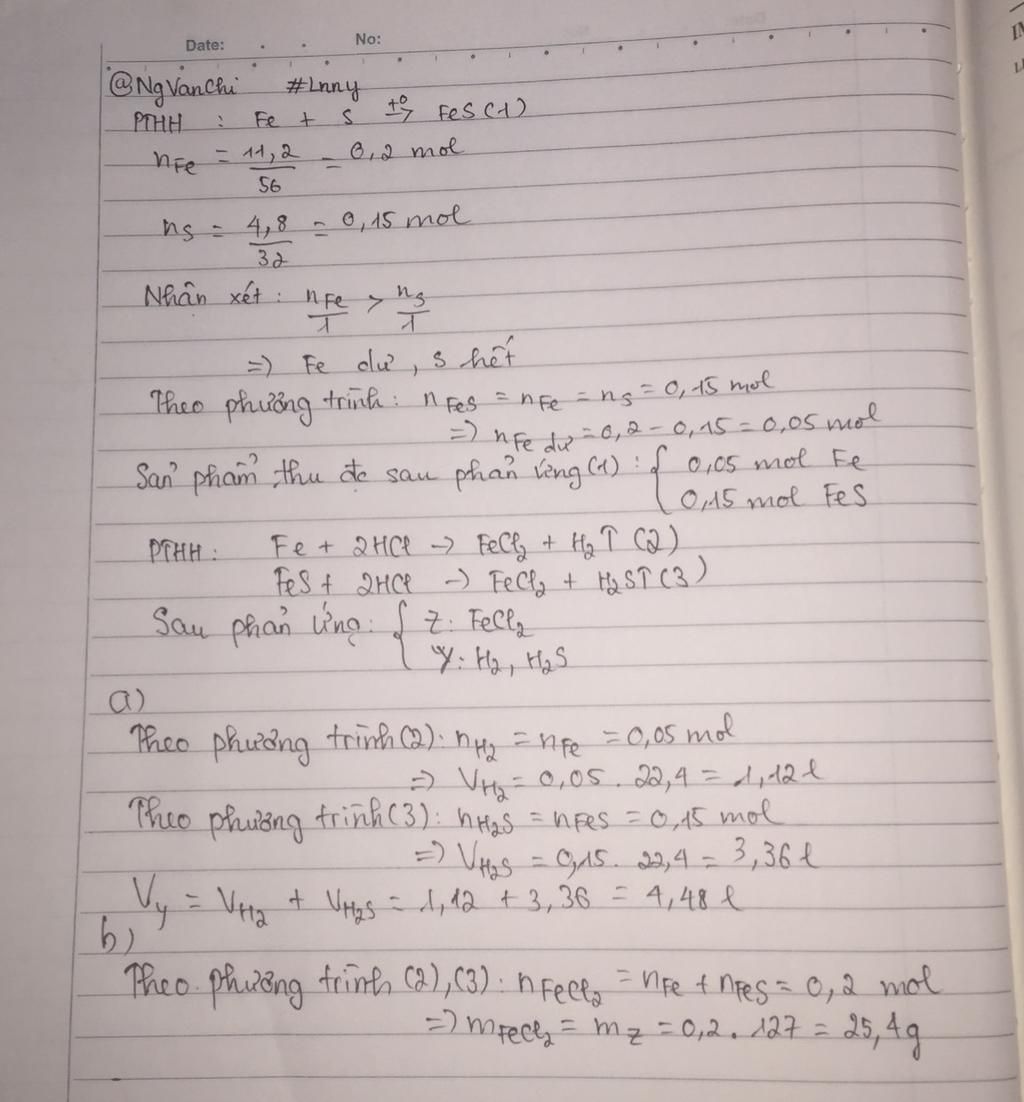 Date: No:
@NgVanChi #Lnny
PTHH : Fe + S t°→ FeS (1)
nFe = 11,2/56 = 0,2 mol
nS = 4,8/32 = 0,15 mol
Nhân xét : nFe/1 > nS/1
=> Fe dư, S hết
Theo phương trình: nFeS = nFe = nS = 0,15 mol
=> nFe dư = 0,2 - 0,15 = 0,05 mol
Sản phẩm thu đc sau phản ứng (1) : { 0,05 mol Fe
0,15 mol FeS
PTHH : Fe + 2HCl → FeCl2 + H2↑ (2)
FeS + 2HCl → FeCl2 + H2S↑ (3)
Sau phản ứng: { Z: FeCl2
Y: H2, H2S
a)
Theo phương trình (2): nH2 = nFe = 0,05 mol
=> VH2 = 0,05 . 22,4 = 1,12 l
Theo phương trình (3): nH2S = nFeS = 0,15 mol
=> VH2S = 0,15 . 22,4 = 3,36 l
Vy = VH2 + VH2S = 1,12 + 3,36 = 4,48 l
b)
Theo phương trình (2), (3): nFeCl2 = nFe + nFeS = 0,2 mol
=> mFeCl2 = mZ = 0,2 . 127 = 25,4g